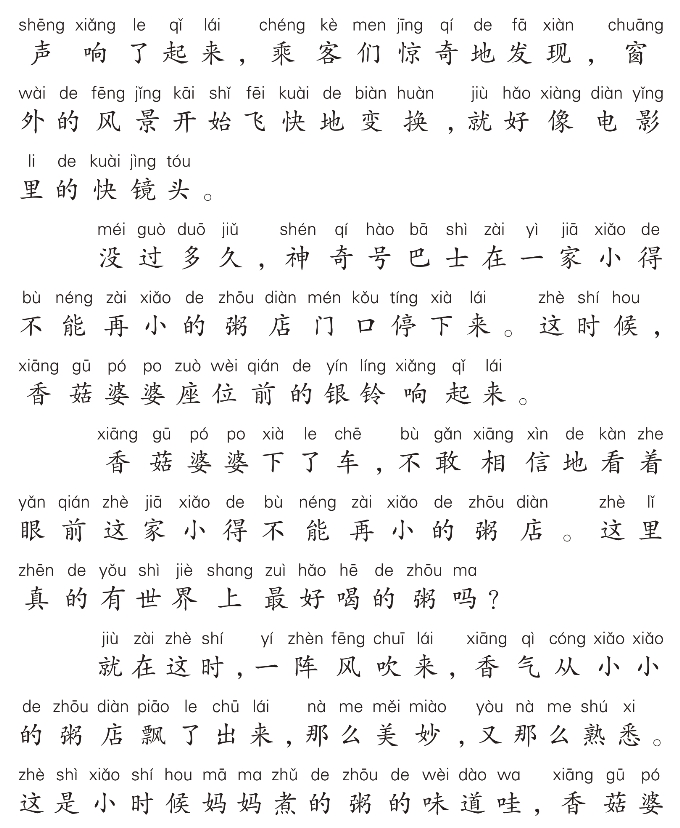 shēng xiǎng le qǐ lái chéng kè men jīng qí de fā xiàn chuāng
声响了起来，乘客们惊奇地发现，窗
wài de fēng jǐng kāi shǐ fēi kuài de biàn huàn jiù hǎo xiàng diàn yǐng
外的风景开始飞快地变换，就好像电影
li de kuài jìng tóu
里的快镜头。
méi guò duō jiǔ shén qí hào bā shì zài yì jiā xiǎo de
没过多久，神奇号巴士在一家小得
bù néng zài xiǎo de zhōu diàn mén kǒu tíng xià lái zhè shí hou
不能再小的粥店门口停下来。这时候，
xiāng gū pó po zuò wèi qián de yín líng xiǎng qǐ lái
香菇婆婆座位前的银铃响起来。
xiāng gū pó po xià le chē bù gǎn xiāng xìn de kàn zhe
香菇婆婆下了车，不敢相信地看着
yǎn qián zhè jiā xiǎo de bù néng zài xiǎo de zhōu diàn zhè lǐ
眼前这家小得不能再小的粥店。这里
zhēn de yǒu shì jiè shang zuì hǎo hē de zhōu ma
真的有世界上最好喝的粥吗？
jiù zài zhè shí yí zhèn fēng chuī lái xiāng qì cóng xiǎo xiǎo
就在这时，一阵风吹来，香气从小小
de zhōu diàn piāo le chū lái nà me měi miào yòu nà me shú xi
的粥店飘了出来，那么美妙，又那么熟悉。
zhè shì xiǎo shí hou mā ma zhǔ de zhōu de wèi dào wa xiāng gū pó
这是小时候妈妈煮的粥的味道哇，香菇婆